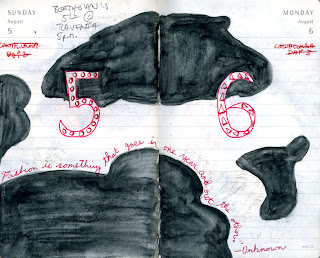 SUNDAY
August
5
BEETHOVEN'S
5th @
RAVINIA
5p.m.
MONDAY
August
6
DAY 2
DAY 3
5
6
Fashion is something that goes in one year and out the other...
—Unknown